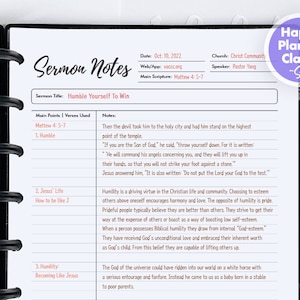 Sermon Notes
Date: Oct. 10, 2022
Church: Christ Communit
Web/App: vacsc.org
Speaker: Pastor Yang
Main Scripture: Matthew 4: 5-7
Sermon Title: Humble Yourself To Win
Main Points | Verses Used
Notes:
Matthew 4: 5-7
Then the devil took him to the holy city and had him stand on the highest
1. Humble
point of the temple.
"If you are the Son of God," he said, "throw yourself down. For it is written:
" He will command his angels concerning you, and they will lift you up in
their hands, so that you will not strike your foot against a stone.'"
Jesus answered him, "It is also written: 'Do not put the Lord your God to the test.'"
2. Jesus' Life
Humility is a driving virtue in the Christian life and community. Choosing to esteem
How to be like J
others above oneself encourages harmony and love. The opposite of humility is pride.
Prideful people typically believe they are better than others. They strive to get their
way at the expense of others or boast as a way of boosting low self-esteem.
When a person possesses Biblical humility they draw from internal "God-esteem."
They have received God's unconditional love and embraced their inherent worth
as God's child. From this belief they are capable of lifting others up.
3. Humility:
The God of the universe could have ridden into our world on a white horse with
Becoming Like Jesus
a serious entourage and fanfare. Instead he came to us as a baby born in a stable
to poor parents.
Hap
Plan
Cla